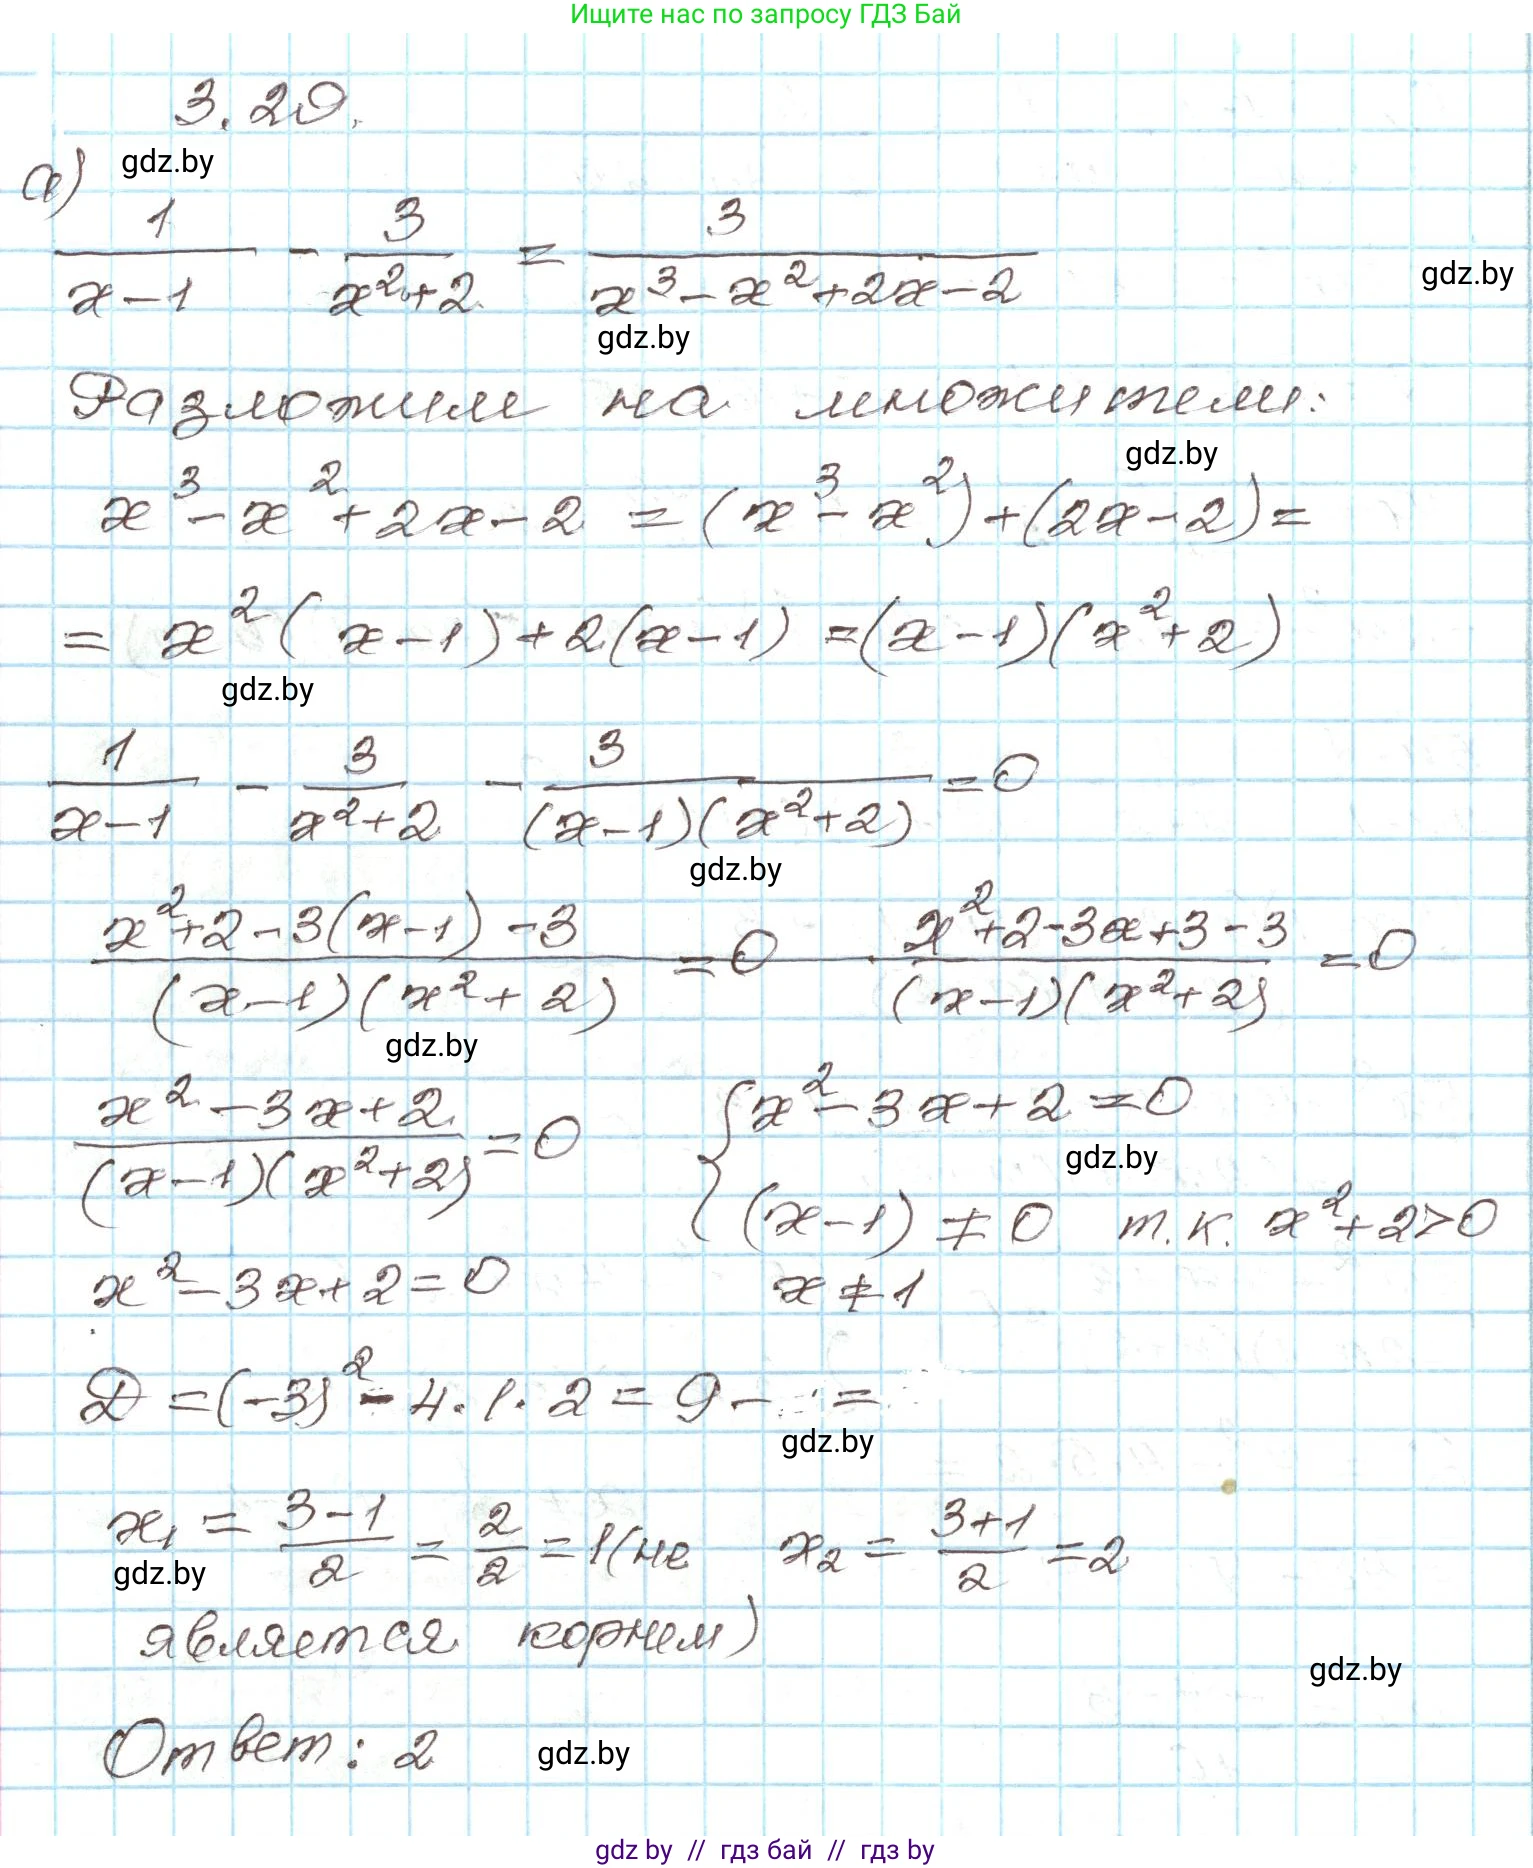 Ищите нас по запросу ГДЗ Бай
3.20.
gdz.by
а)
1/(x-1) - 3/(x²+2) = 3/(x³-x²+2x-2)
gdz.by
gdz.by
Разложим на множители:
gdz.by
x³-x²+2x-2 = (x³-x²)+(2x-2)=
= x²(x-1)+2(x-1) =(x-1)(x²+2)
gdz.by
1/(x-1) - 3/(x²+2) - 3/((x-1)(x²+2)) =0
gdz.by
(x²+2-3(x-1)-3)/((x-1)(x²+2)) =0 (x²+2-3x+3-3)/((x-1)(x²+2)) =0
gdz.by
(x²-3x+2)/((x-1)(x²+2)) =0 { x²-3x+2=0
gdz.by
(x-1) ≠ 0 т.к. x²+2>0
x²-3x+2=0 x ≠ 1
D =(-3)²-4·1·2=9- =
gdz.by
x₁ = (3-1)/2 = 2/2 =1(не x₂ = (3+1)/2 =2
gdz.by
является корнем)
gdz.by
Ответ: 2 gdz.by
gdz by // гдз бай // гдз by